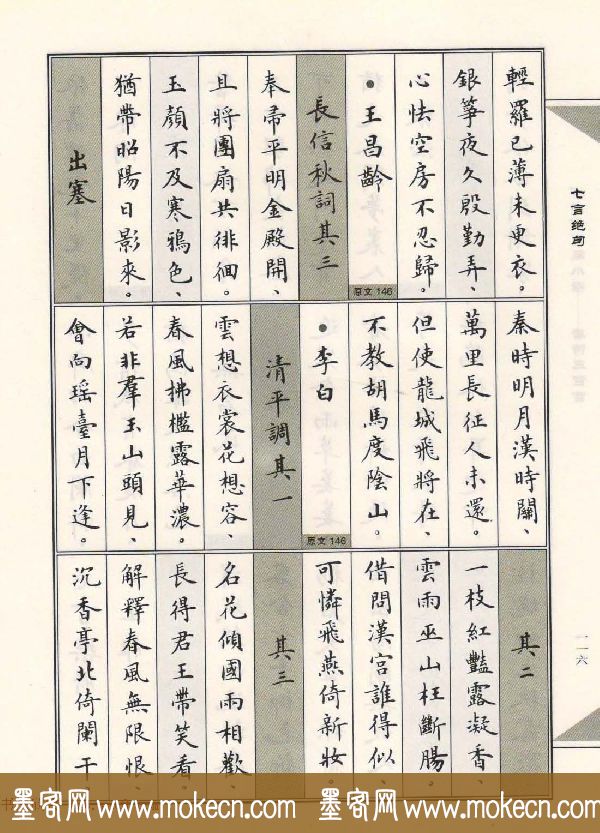 七言绝句
輕羅已薄未更衣。
銀箏夜久殷勤弄、
心怯空房不忍歸。
•王昌齡
原文146
長信秋詞其三
奉帚平明金殿開、
且將團扇共徘徊。
玉顏不及寒鴉色、
猶帶昭陽日影來。
出塞
秦時明月漢時關、
萬里長征人未還。
但使龍城飛將在、
不教胡馬度陰山。
•李白
原文146
清平調其一
雲想衣裳花想容、
春風拂檻露華濃。
若非羣玉山頭見、
會向瑶臺月下逢。
其二
一枝紅豔露凝香、
雲雨巫山枉斷腸。
借問漢宮誰得似、
可憐飛燕倚新妝。
其三
名花傾國兩相歡、
長得君王帶笑看。
解釋春風無限恨、
沉香亭北倚闌干。
一一六
墨客网 www.mokecn.com 墨客网 www.mokecn.com